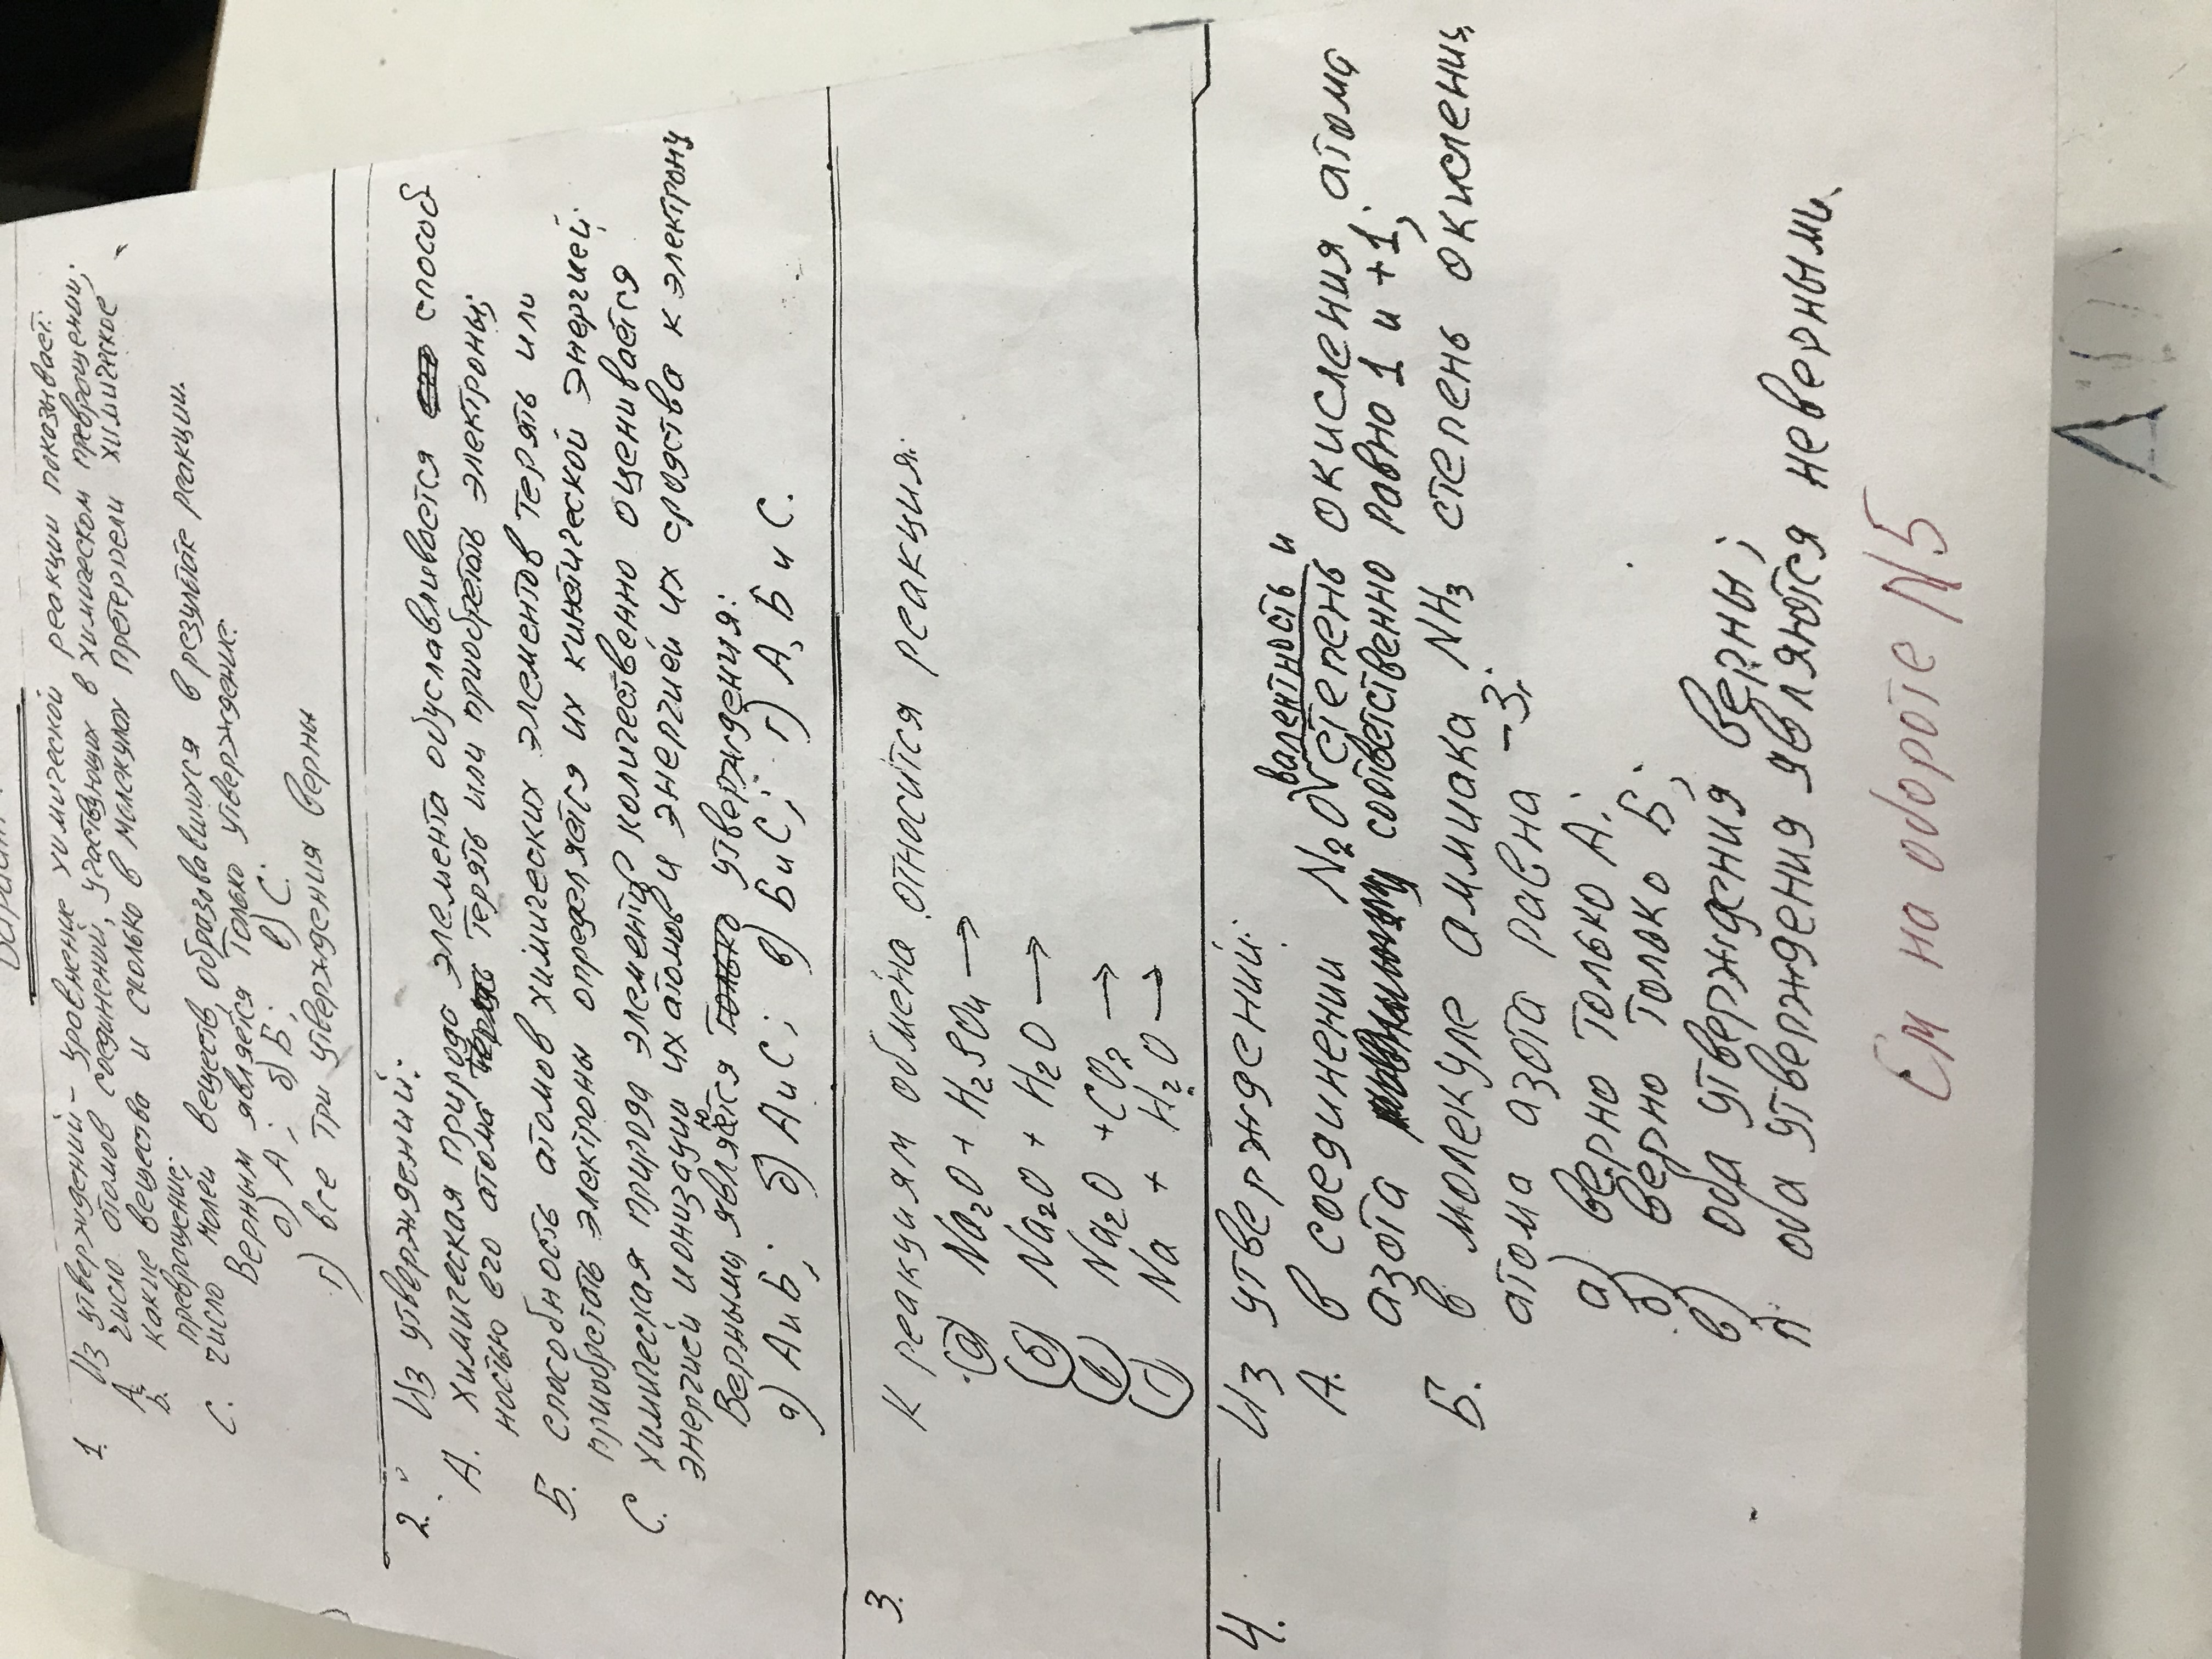 1. Из утверждений - уровнение химической реакции показывает:
А. число атомов соединений, участвующих в химическом превращении;
Б. какие вещества и сколько в молекулах претерпели химическое
превращение;
С. число молей веществ, образовавшихся в результе реакции.
Верным является только утверждение:
а) А; б) Б; в) С.
г) все три утверждения верны
2. Из утверждений:
А. химическая природа элемента обуславливается способ
ностью его атома терять или приобретать электроны;
Б. способность атомов химических элементов терять или
приобретать электроны определяется их кинетической энергией;
С. химическая природа элементов количественно оценивается
энергией ионизации их атомов и энергией их сродства к электрону
Верными являются утверждения:
а) А и Б; б) А и С; в) Б и С; г) А, Б и С.
3. К реакциям обмена относится реакция:
а) Na2O + H2SO4 →
б) Na2O + H2O →
в) Na2O + CO2 →
г) Na + H2O →
4. Из утверждений:
валентность и
А. в соединении N2O степень окисления атома
азота соответственно равно 1 и +1;
Б. в молекуле аммиака NH3 степень окислени
атома азота равна -3.
а) верно только А;
б) верно только Б;
в) оба утверждения верны;
г) оба утверждения являются неверными.
См на обороте N5